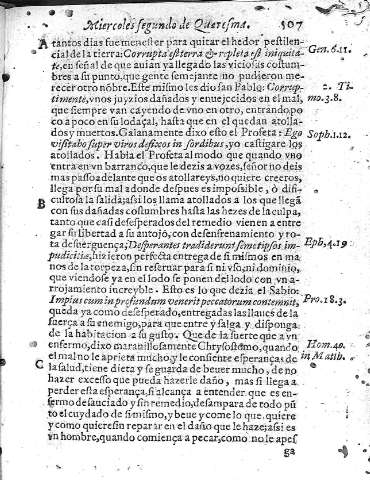 Miercoles segundo de Quaresma. 507
A tantos dias fue menester para quitar el hedor pestilen-
cial de la tierra: Corrupta est terra & repleta est iniquita- Gen. 6.11.
te, en señal de que auian ya llegado las viciosas costum-
bres a su punto, que gente semejante no pudieron me-
recer otro nõbre. Este mismo les dio san Pablo: Corrup- 2. Ti-
timente, vnos juyzios dañados y enuejecidos en el mal, mo. 3.8.
que siempre van cayendo de vno en otro, entrandopo
co a poco en su lodaçal, hasta que en el quedan atolla-
dos y muertos. Galanamente dixo esto el Profeta: Ego Soph. 1.12.
visitabo super viros defixos in sordibus, yo castigare los
atollados. Habla el Profeta al modo que quando vno
entra en vn barranco, que le dezis a vozes, señor no deis
mas passo adelante que os atollareys, no quiere creeros,
llega por su mal a donde despues es impossible, ò difi-
cultosa la salida; assi los llama atollados a los que llegã
B con sus dañadas costumbres hasta las hezes de la culpa,
tanto que casi desesperados del remedio vienen a entre
gar su libertad a su antojo, con desenfrenamiento y ro-
ta desuerguença; Desperantes tradiderunt semetipsos im- Eph. 4.19
pudicitiæ, hizieron perfecta entrega de si mismos en ma
nos de la torpeza, sin reseruar para si ni vso, ni dominio,
que viendose ya en el lodo se ponen del lodo con vn a-
rrojamiento increyble. Esto es lo que dezia el Sabio:
Impius cum in profundum venerit peccatorum contemnit, Pro. 18.3.
queda ya como desesperado, entregadas las llaues de la
fuerça a su enemigo, para que entre y salga y disponga
de la habitacion a su gusto. Que de la suerte que a vn
enfermo, dixo marauillosamente Chrysostomo, quando Hom. 40.
el mal no le aprieta mucho, y le consiente esperanças de in Matth.
C la salud, tiene dieta y se guarda de beuer mucho, de no
hazer excesso que pueda hazerle daño, mas si llega a
perder esta esperança, si alcança a entender que es en-
fermo desauciado y sin remedio, desampara de todo pũ
to el cuydado de si mismo, y beue y come lo que quiere
y como quiere sin reparar en el daño que le haze; assi es
vn hombre, quando comiença a pecar, como no le apes
ga